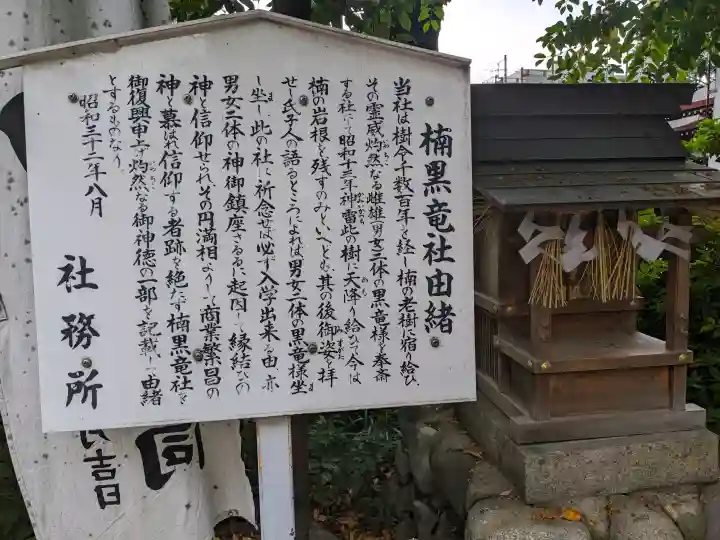 楠黒竜社由緒
当社は樹令千数百年を経し楠の老樹に宿り給ひ
その霊感灼然なる雌雄(男女)二体の黒竜様を奉斎
する社にて昭和十三年神雷此の樹に天降り給ひて今は
楠の岩根を残すのみといへども其の後御姿を拝
せし氏子人の語るところによれば男女二体の黒竜様坐
し坐し此の社に祈念せば必ず入学出来る由亦
男女二体の神御鎮座さるるに起因して縁結びの
神と信仰せられその円満相よりして商業繁昌の
神と慕はれ信仰する者跡を絶たず楠黒竜社を
御復興申上げ灼然なる御神徳の一部を記載して由緒
とするものなり
昭和三十二年八月
社務所
吉日